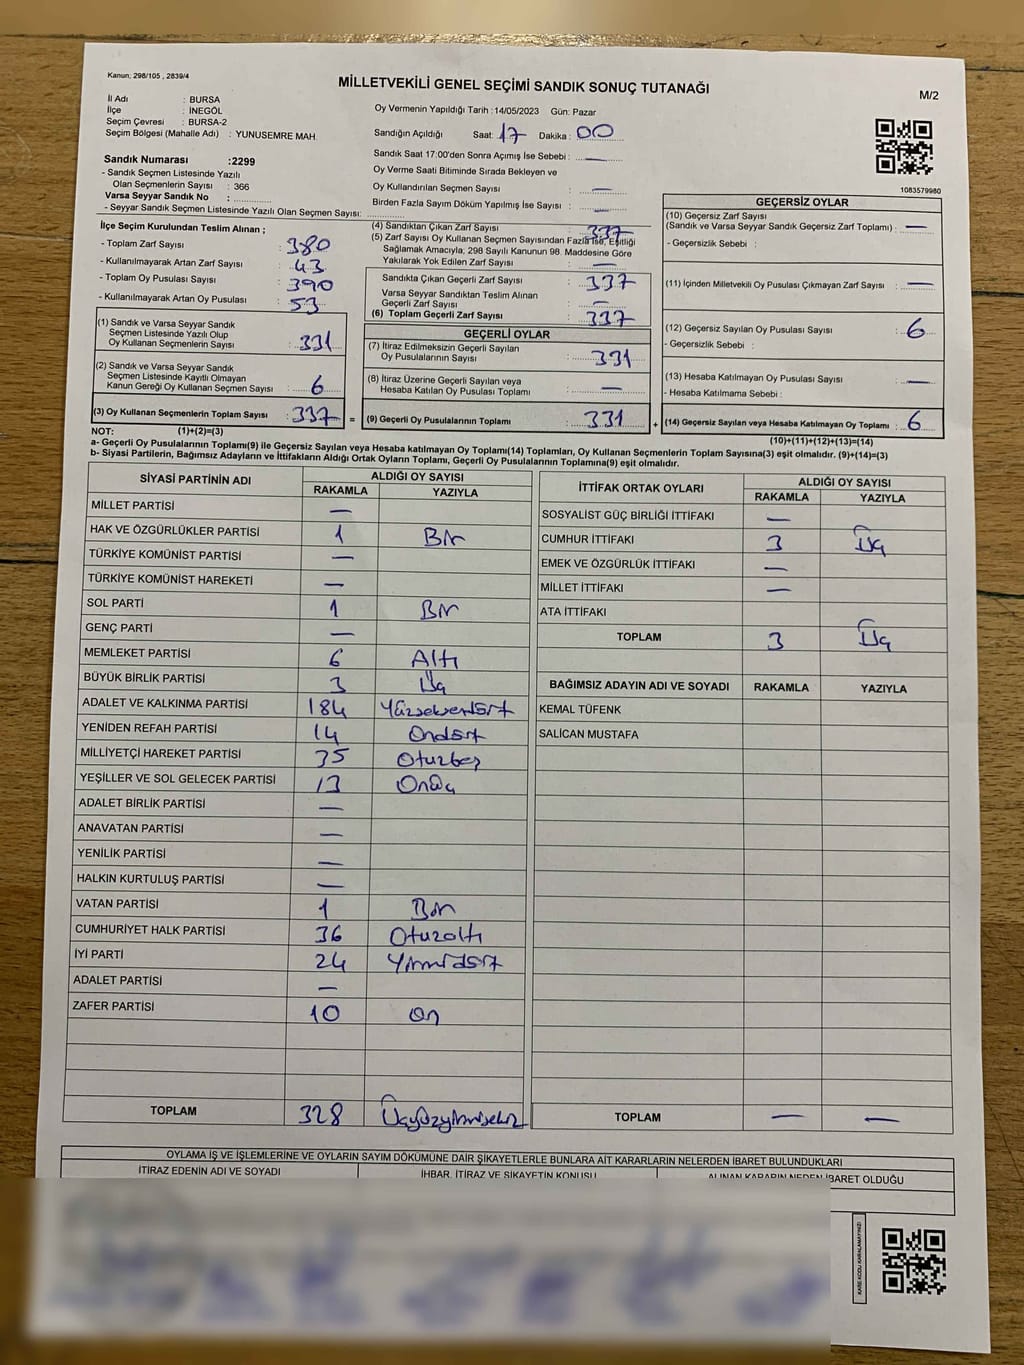 Kanun; 298/105 , 2839/4
MİLLETVEKİLİ GENEL SEÇİMİ SANDIK SONUÇ TUTANAĞI
M/2
İl Adı : BURSA
İlçe : İNEGÖL
Seçim Çevresi : BURSA-2
Seçim Bölgesi (Mahalle Adı) : YUNUSEMRE MAH.
Oy Vermenin Yapıldığı Tarih :14/05/2023 Gün: Pazar
Sandığın Açıldığı Saat: 17 Dakika : 00
Sandık Saat 17:00'den Sonra Açımış İse Sebebi : —
Oy Verme Saati Bitiminde Sırada Bekleyen ve
Oy Kullandırılan Seçmen Sayısı : —
Birden Fazla Sayım Döküm Yapılmış İse Sayısı : —
1083579980
Sandık Numarası :2299
- Sandık Seçmen Listesinde Yazılı
Olan Seçmenlerin Sayısı : 366
Varsa Seyyar Sandık No :
- Seyyar Sandık Seçmen Listesinde Yazılı Olan Seçmen Sayısı:
İlçe Seçim Kurulundan Teslim Alınan ;
- Toplam Zarf Sayısı : 380
- Kullanılmayarak Artan Zarf Sayısı : 43
- Toplam Oy Pusulası Sayısı : 390
- Kullanılmayarak Artan Oy Pusulası : 53
(1) Sandık ve Varsa Seyyar Sandık
Seçmen Listesinde Yazılı Olup
Oy Kullanan Seçmenlerin Sayısı : 331
(2) Sandık ve Varsa Seyyar Sandık
Seçmen Listesinde Kayıtlı Olmayan
Kanun Gereği Oy Kullanan Seçmen Sayısı : 6
(3) Oy Kullanan Seçmenlerin Toplam Sayısı : 337 =
(4) Sandıktan Çıkan Zarf Sayısı : 337
(5) Zarf Sayısı Oy Kullanan Seçmen Sayısından Fazla İse, Eşitliği
Sağlamak Amacıyla, 298 Sayılı Kanunun 98. Maddesine Göre
Yakılarak Yok Edilen Zarf Sayısı : —
Sandıkta Çıkan Geçerli Zarf Sayısı : 337
Varsa Seyyar Sandıktan Teslim Alınan
Geçerli Zarf Sayısı : —
(6) Toplam Geçerli Zarf Sayısı : 337
GEÇERLİ OYLAR
(7) İtiraz Edilmeksizin Geçerli Sayılan
Oy Pusulalarının Sayısı : 331
(8) İtiraz Üzerine Geçerli Sayılan veya
Hesaba Katılan Oy Pusulası Toplamı : —
(9) Geçerli Oy Pusulalarının Toplamı : 331 +
GEÇERSİZ OYLAR
(10) Geçersiz Zarf Sayısı
(Sandık ve Varsa Seyyar Sandık Geçersiz Zarf Toplamı) : —
- Geçersizlik Sebebi :
(11) İçinden Milletvekili Oy Pusulası Çıkmayan Zarf Sayısı : —
(12) Geçersiz Sayılan Oy Pusulası Sayısı : 6
- Geçersizlik Sebebi :
(13) Hesaba Katılmayan Oy Pusulası Sayısı : —
- Hesaba Katılmama Sebebi :
(14) Geçersiz Sayılan veya Hesaba Katılmayan Oy Toplamı : 6
NOT: (1)+(2)=(3)
(10)+(11)+(12)+(13)=(14)
a- Geçerli Oy Pusulalarının Toplamı(9) ile Geçersiz Sayılan veya Hesaba katılmayan Oy Toplamı(14) Toplamları, Oy Kullanan Seçmenlerin Toplam Sayısına(3) eşit olmalıdır. (9)+(14)=(3)
b- Siyasi Partilerin, Bağımsız Adayların ve İttifakların Aldığı Ortak Oyların Toplamı, Geçerli Oy Pusulalarının Toplamına(9) eşit olmalıdır.
SİYASİ PARTİNİN ADI ALDIĞI OY SAYISI
RAKAMLA YAZIYLA
MİLLET PARTİSİ —
HAK VE ÖZGÜRLÜKLER PARTİSİ 1 Bir
TÜRKİYE KOMÜNİST PARTİSİ —
TÜRKİYE KOMÜNİST HAREKETİ —
SOL PARTİ 1 Bir
GENÇ PARTİ —
MEMLEKET PARTİSİ 6 Altı
BÜYÜK BİRLİK PARTİSİ 3 Üç
ADALET VE KALKINMA PARTİSİ 184 Yüzseksendört
YENİDEN REFAH PARTİSİ 14 Ondört
MİLLİYETÇİ HAREKET PARTİSİ 35 Otuzbeş
YEŞİLLER VE SOL GELECEK PARTİSİ 13 Onüç
ADALET BİRLİK PARTİSİ —
ANAVATAN PARTİSİ —
YENİLİK PARTİSİ —
HALKIN KURTULUŞ PARTİSİ —
VATAN PARTİSİ 1 Bir
CUMHURİYET HALK PARTİSİ 36 Otuzaltı
İYİ PARTİ 24 Yirmidört
ADALET PARTİSİ —
ZAFER PARTİSİ 10 On
TOPLAM 328 Üçyüzyirmisekiz
İTTİFAK ORTAK OYLARI ALDIĞI OY SAYISI
RAKAMLA YAZIYLA
SOSYALİST GÜÇ BİRLİĞİ İTTİFAKI —
CUMHUR İTTİFAKI 3 Üç
EMEK VE ÖZGÜRLÜK İTTİFAKI —
MİLLET İTTİFAKI —
ATA İTTİFAKI
TOPLAM 3 Üç
BAĞIMSIZ ADAYIN ADI VE SOYADI RAKAMLA YAZIYLA
KEMAL TÜFENK
SALİCAN MUSTAFA
TOPLAM — —
OYLAMA İŞ VE İŞLEMLERİNE VE OYLARIN SAYIM DÖKÜMÜNE DAİR ŞİKAYETLERLE BUNLARA AİT KARARLARIN NELERDEN İBARET BULUNDUKLARI
İTİRAZ EDENİN ADI VE SOYADI İHBAR, İTİRAZ VE ŞİKAYETİN KONUSU ALINAN KARARIN NEDEN İBARET OLDUĞU
KARE KODU KARALAMAYINIZ!